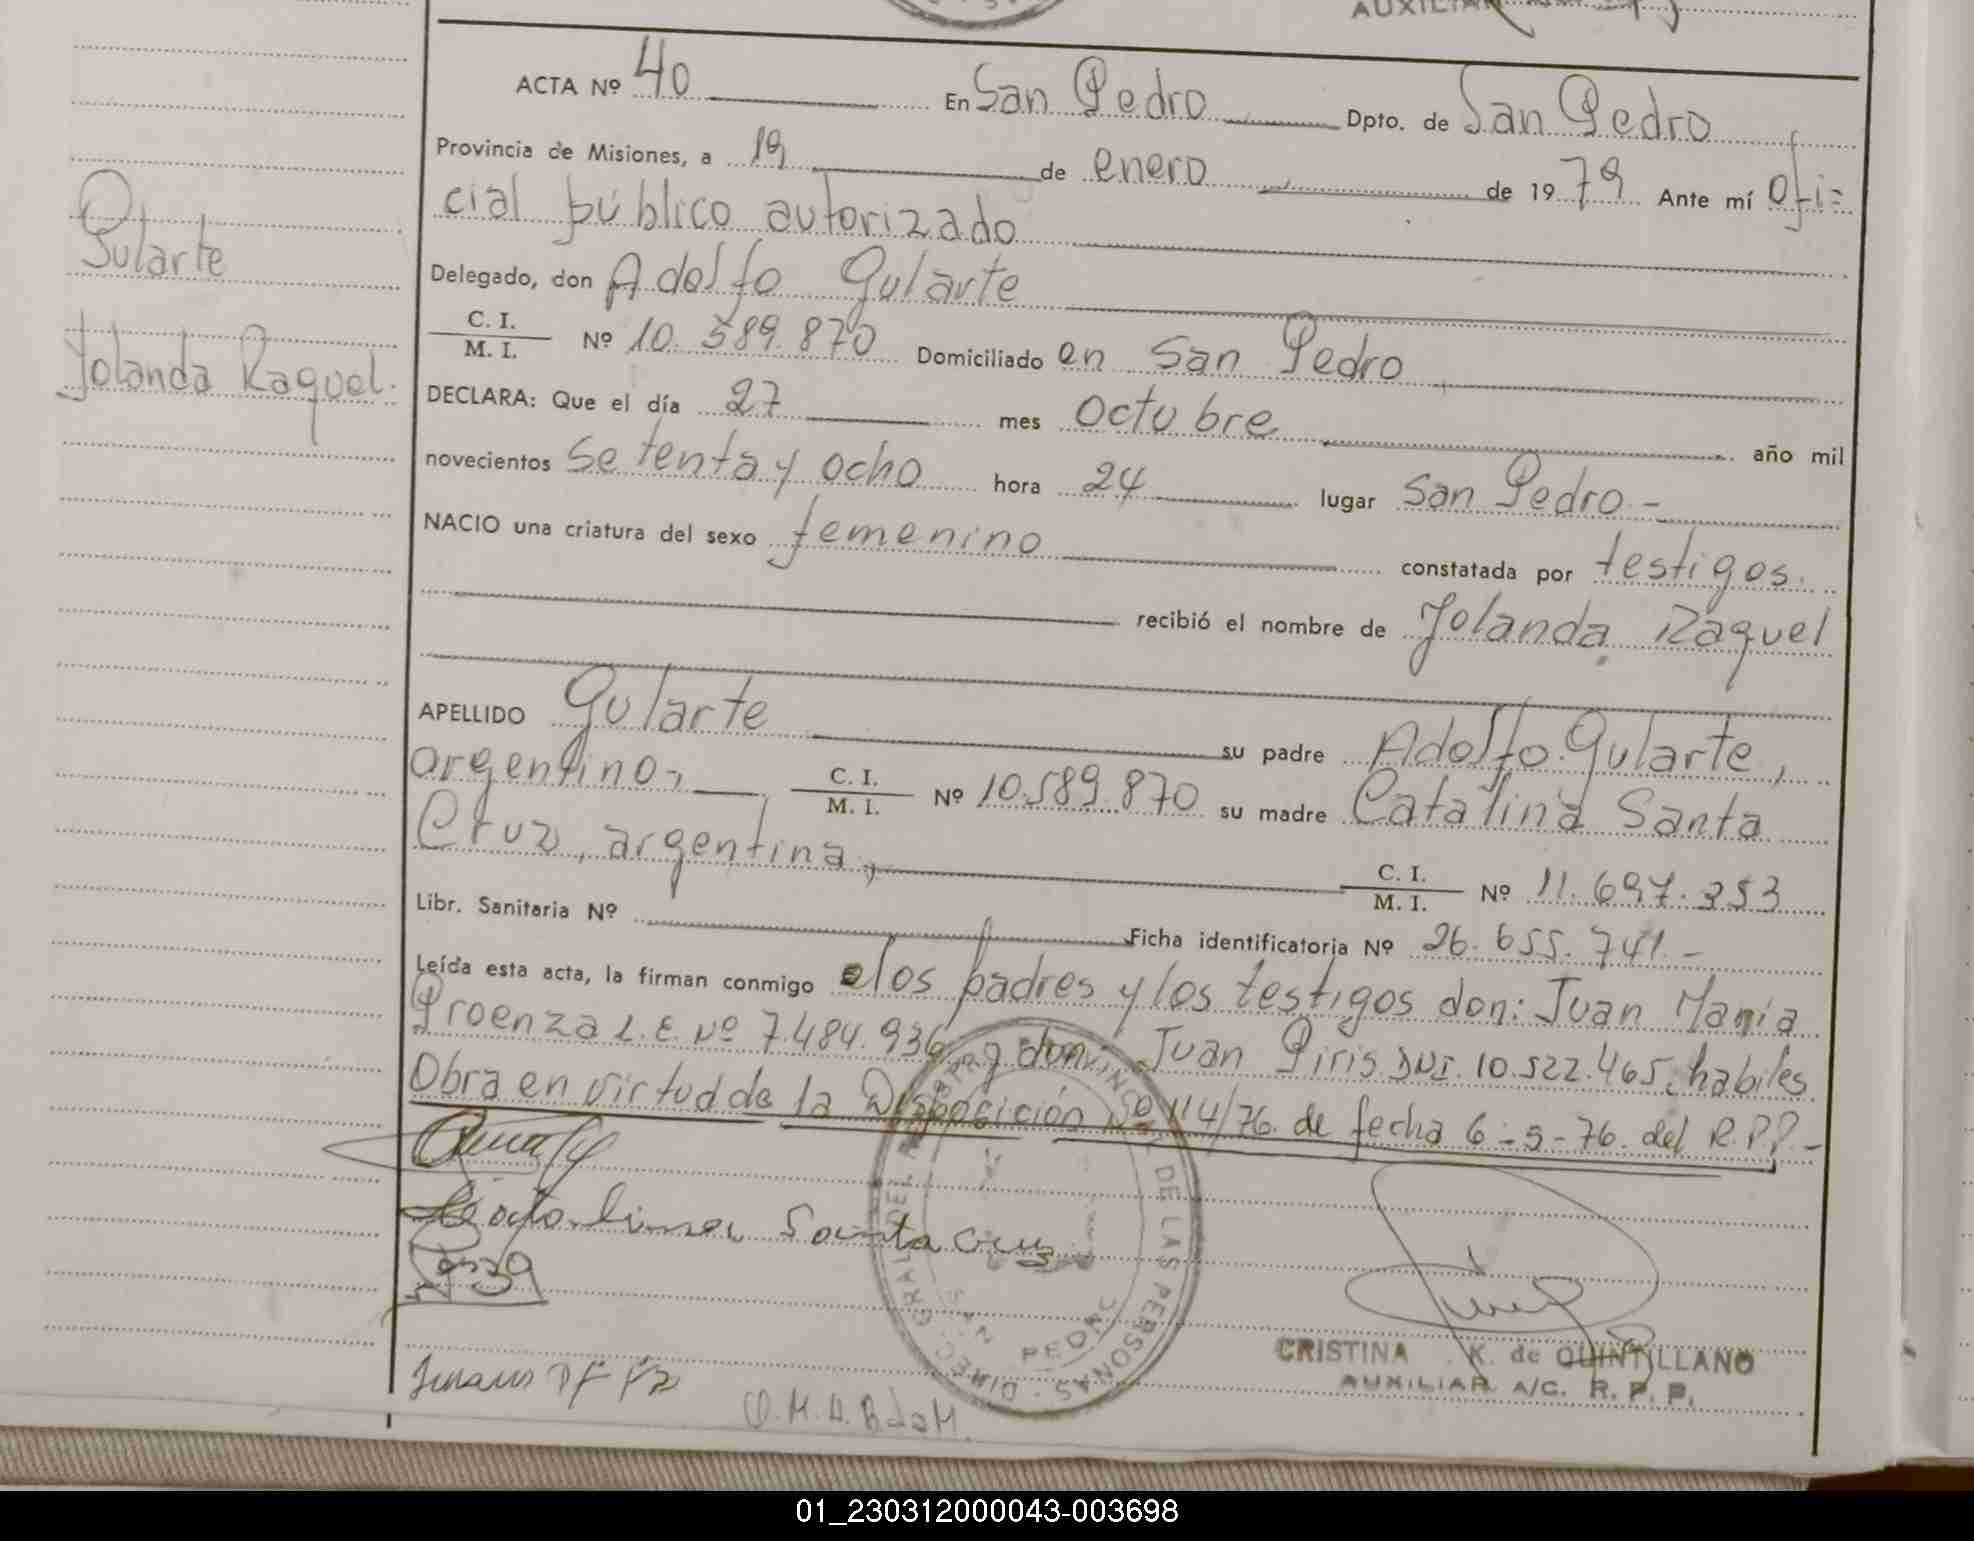 AUXILIAR
ACTA Nº 40 En San Pedro Dpto. de San Pedro
Provincia de Misiones, a 19 de enero de 1979 Ante mí Ofi=
cial público autorizado
Gularte
Delegado, don Adolfo Gularte
C. I.
M. I. Nº 10.589.870 Domiciliado en San Pedro
Yolanda Raquel.
DECLARA: Que el día 27 mes octubre año mil
novecientos setenta y ocho hora 24 lugar San Pedro -
NACIO una criatura del sexo femenino constatada por testigos.
recibió el nombre de Yolanda Raquel
APELLIDO Gularte su padre Adolfo Gularte,
argentino, C. I.
M. I. Nº 10.589.870 su madre Catalina Santa
Cruz, argentina, C. I.
M. I. Nº 11.697.353
Libr. Sanitaria Nº Ficha identificatoria Nº 26.655.741.-
Leída esta acta, la firman conmigo los padres y los testigos don: Juan María
Proenza L.E. Nº 7.484.936 y don: Juan Piris DNI. 10.522.465, habiles
Obra en virtud de la Disposición Nº 114/76. de fecha 6-5-76. del R.P.P.-
Catalina Santa Cruz
DIREC. GRAL. DEL REG. PROVINCIAL DE LAS PERSONAS
SAN PEDRO
CRISTINA K. de QUINTILLANO
AUXILIAR A/C. R. P. P.
01_230312000043-003698